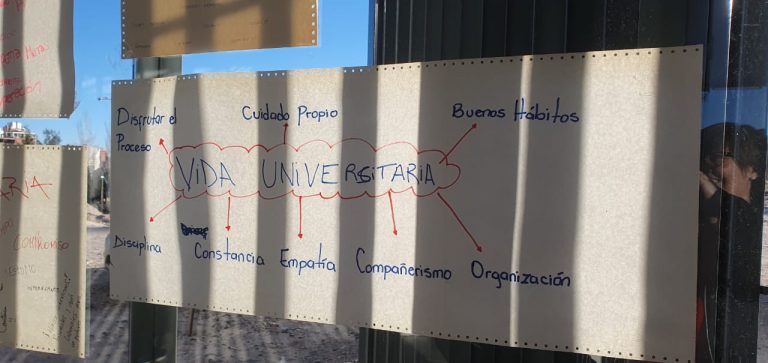 Disfrutar el
Proceso
Cuidado Propio
Buenos Hábitos
VIDA UNIVERSITARIA
Disciplina
Constancia
Empatía
Compañerismo
Organización
ARIA
Compromiso